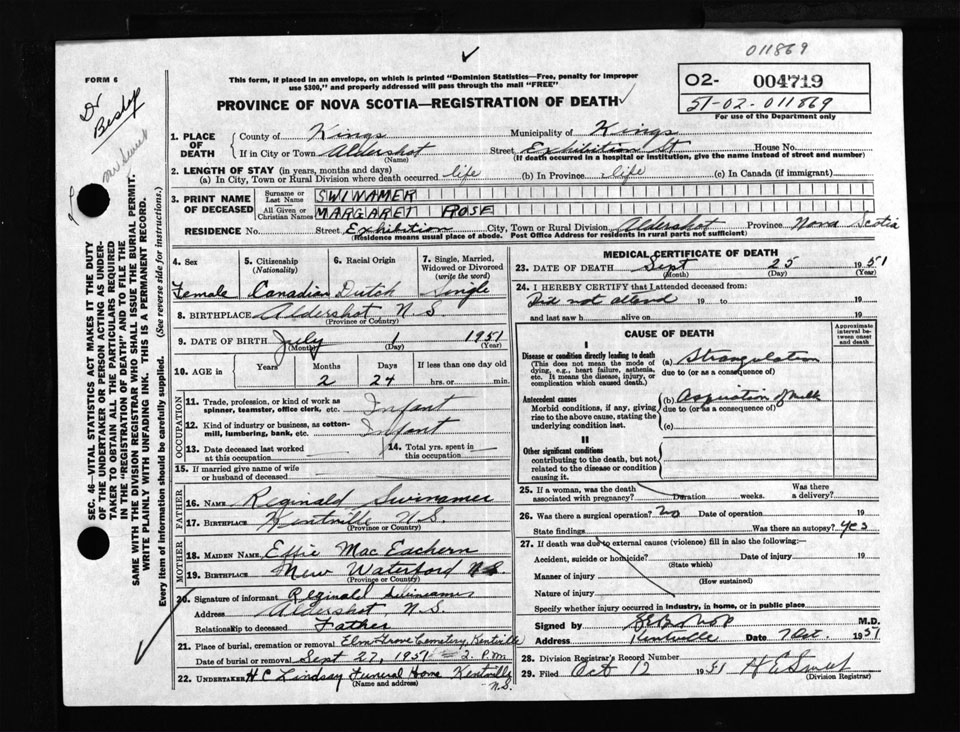 011869
FORM 6
This form, if placed in an envelope, on which is printed "Dominion Statistics—Free, penalty for improper
use $300," and properly addressed will pass through the mail "FREE"
02- 004719
51-02-011869
For use of the Department only
PROVINCE OF NOVA SCOTIA—REGISTRATION OF DEATH
Dr
Bishop
SEC. 46—VITAL STATISTICS ACT MAKES IT THE DUTY
OF THE UNDERTAKER OR PERSON ACTING AS UNDER-
TAKER TO OBTAIN ALL THE PARTICULARS REQUIRED
IN THE "REGISTRATION OF DEATH" AND TO FILE THE
SAME WITH THE DIVISION REGISTRAR WHO SHALL ISSUE THE BURIAL PERMIT.
WRITE PLAINLY WITH UNFADING INK. THIS IS A PERMANENT RECORD.
Every item of information should be carefully supplied. (See reverse side for instructions.)
1. PLACE OF DEATH
County of Kings Municipality of Kings
If in City or Town Aldershot Street Exhibition St House No.
(Name) (If death occurred in a hospital or institution, give the name instead of street and number)
2. LENGTH OF STAY (in years, months and days)
(a) In City, Town or Rural Division where death occurred life (b) In Province life (c) In Canada (if immigrant)
3. PRINT NAME OF DECEASED
Surname or Last Name SWINAMER
All Given or Christian Names MARGARET ROSE
RESIDENCE No. Street Exhibition City, Town or Rural Division Aldershot Province Nova Scotia
(Residence means usual place of abode. Post Office Address for residents in rural parts not sufficient)
4. Sex 5. Citizenship (Nationality) 6. Racial Origin 7. Single, Married, Widowed or Divorced (write the word)
Female Canadian Dutch Single
8. BIRTHPLACE Aldershot N.S.
(Province or Country)
9. DATE OF BIRTH July 1 1951
(Month) (Day) (Year)
10. AGE in Years Months Days
2 24 hrs. or min.
OCCUPATION
11. Trade, profession, or kind of work as
spinner, teamster, office clerk, etc. Infant
12. Kind of industry or business, as cotton-
mill, lumbering, bank, etc. Infant
13. Date deceased last worked at this occupation 14. Total yrs. spent in this occupation
15. If married give name of wife
or husband of deceased
FATHER
16. NAME Reginald Swinamer
17. BIRTHPLACE Kentville N.S.
(Province or Country)
MOTHER
18. MAIDEN NAME Effie MacEachern
19. BIRTHPLACE New Waterford N.S.
(Province or Country)
20. Signature of informant Reginald Swinamer
Address Aldershot N.S.
Relationship to deceased Father
21. Place of burial, cremation or removal Elm Grove Cemetery, Kentville
Date of burial or removal Sept 27, 1951 2. P.M.
22. UNDERTAKER H C Lindsay Funeral Home Kentville
(Name and address) N.S.
MEDICAL CERTIFICATE OF DEATH
23. DATE OF DEATH Sept 25 1951
(Month) (Day) (Year)
24. I HEREBY CERTIFY that I attended deceased from:
Did not attend 19 to 19
and last saw h alive on 19
CAUSE OF DEATH
Approximate interval between onset and death
I
Disease or condition directly leading to death (a) Strangulation
(This does not mean the mode of dying, e.g., heart failure, asthenia, etc. It means the disease, injury, or complication which caused death.)
due to (or as a consequence of)
Antecedent causes (b) Aspiration of milk
Morbid conditions, if any, giving rise to the above cause, stating the underlying condition last.
due to (or as a consequence of)
(c)
II
Other significant conditions
contributing to the death, but not
related to the disease or condition
causing it.
25. If a woman, was the death associated with pregnancy? Duration weeks. Was there a delivery?
26. Was there a surgical operation? No Date of operation 19
State findings Was there an autopsy? Yes
27. If death was due to external causes (violence) fill in also the following:—
Accident, suicide or homicide? Date of injury 19
(State which)
Manner of injury
(How sustained)
Nature of injury
Specify whether injury occurred in industry, in home, or in public place
Signed by M.D.
Address Kentville Date 7 Oct. 1951
28. Division Registrar's Record Number
29. Filed Oct 12 1951
(Division Registrar)